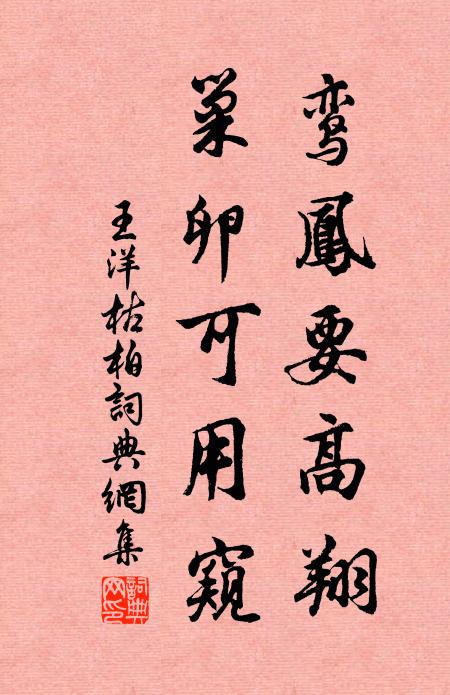 鸾鳳要高翔
巢卵可用窺
王洋枯柏詞典網集
詞典网印